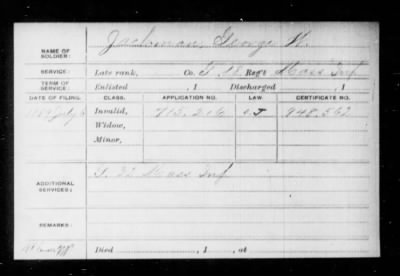 NAME OF SOLDIER: Jackman, George W.
SERVICE: Late rank, Co. G 18 Reg't Mass Inf
TERM OF SERVICE: Enlisted , 1 Discharged , 1
DATE OF FILING. CLASS. APPLICATION NO. LAW. CERTIFICATE NO.
July Invalid, 712.216 948.562
Widow,
Minor,
ADDITIONAL SERVICES: Mass Inf
REMARKS:
Died , 1 , at